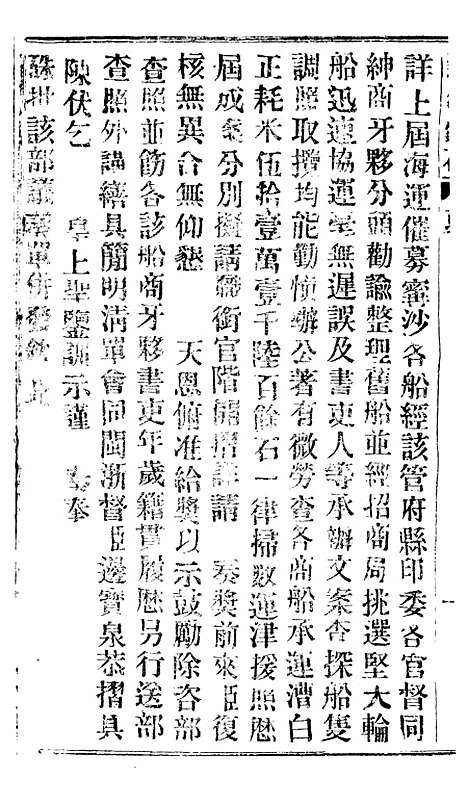 詳上屆海運催募寗沙各船經該管府縣印委各官督同
紳商牙夥分頭勸諭整理舊船並經招商局挑選堅大輪
船迅速協運毫無遲誤及書吏人等承辦文案查探船隻
調照取攬均能勤慎辦公著有微勞查各商船承運漕白
正耗米伍拾壹萬壹千陸百餘石一律掃數運津援照歷
屆成案分別擬請職銜官階繕摺詳請 奏獎前來臣復
核無異合無仰懇 天恩俯准給獎以示鼓勵除咨部
查照並飭各該船商牙夥書吏年歲籍貫履歷另行送部
查照外謹繕具簡明清單會同閩浙督臣邊寶泉恭摺具
陳伏乞 皇上聖鑒訓示謹 奏奉
硃批該部議奏單併發欽此